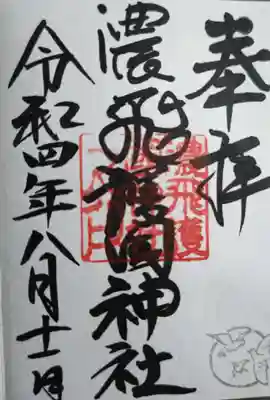 奉拝
濃飛護国神社
令和四年八月十一日
濃飛護